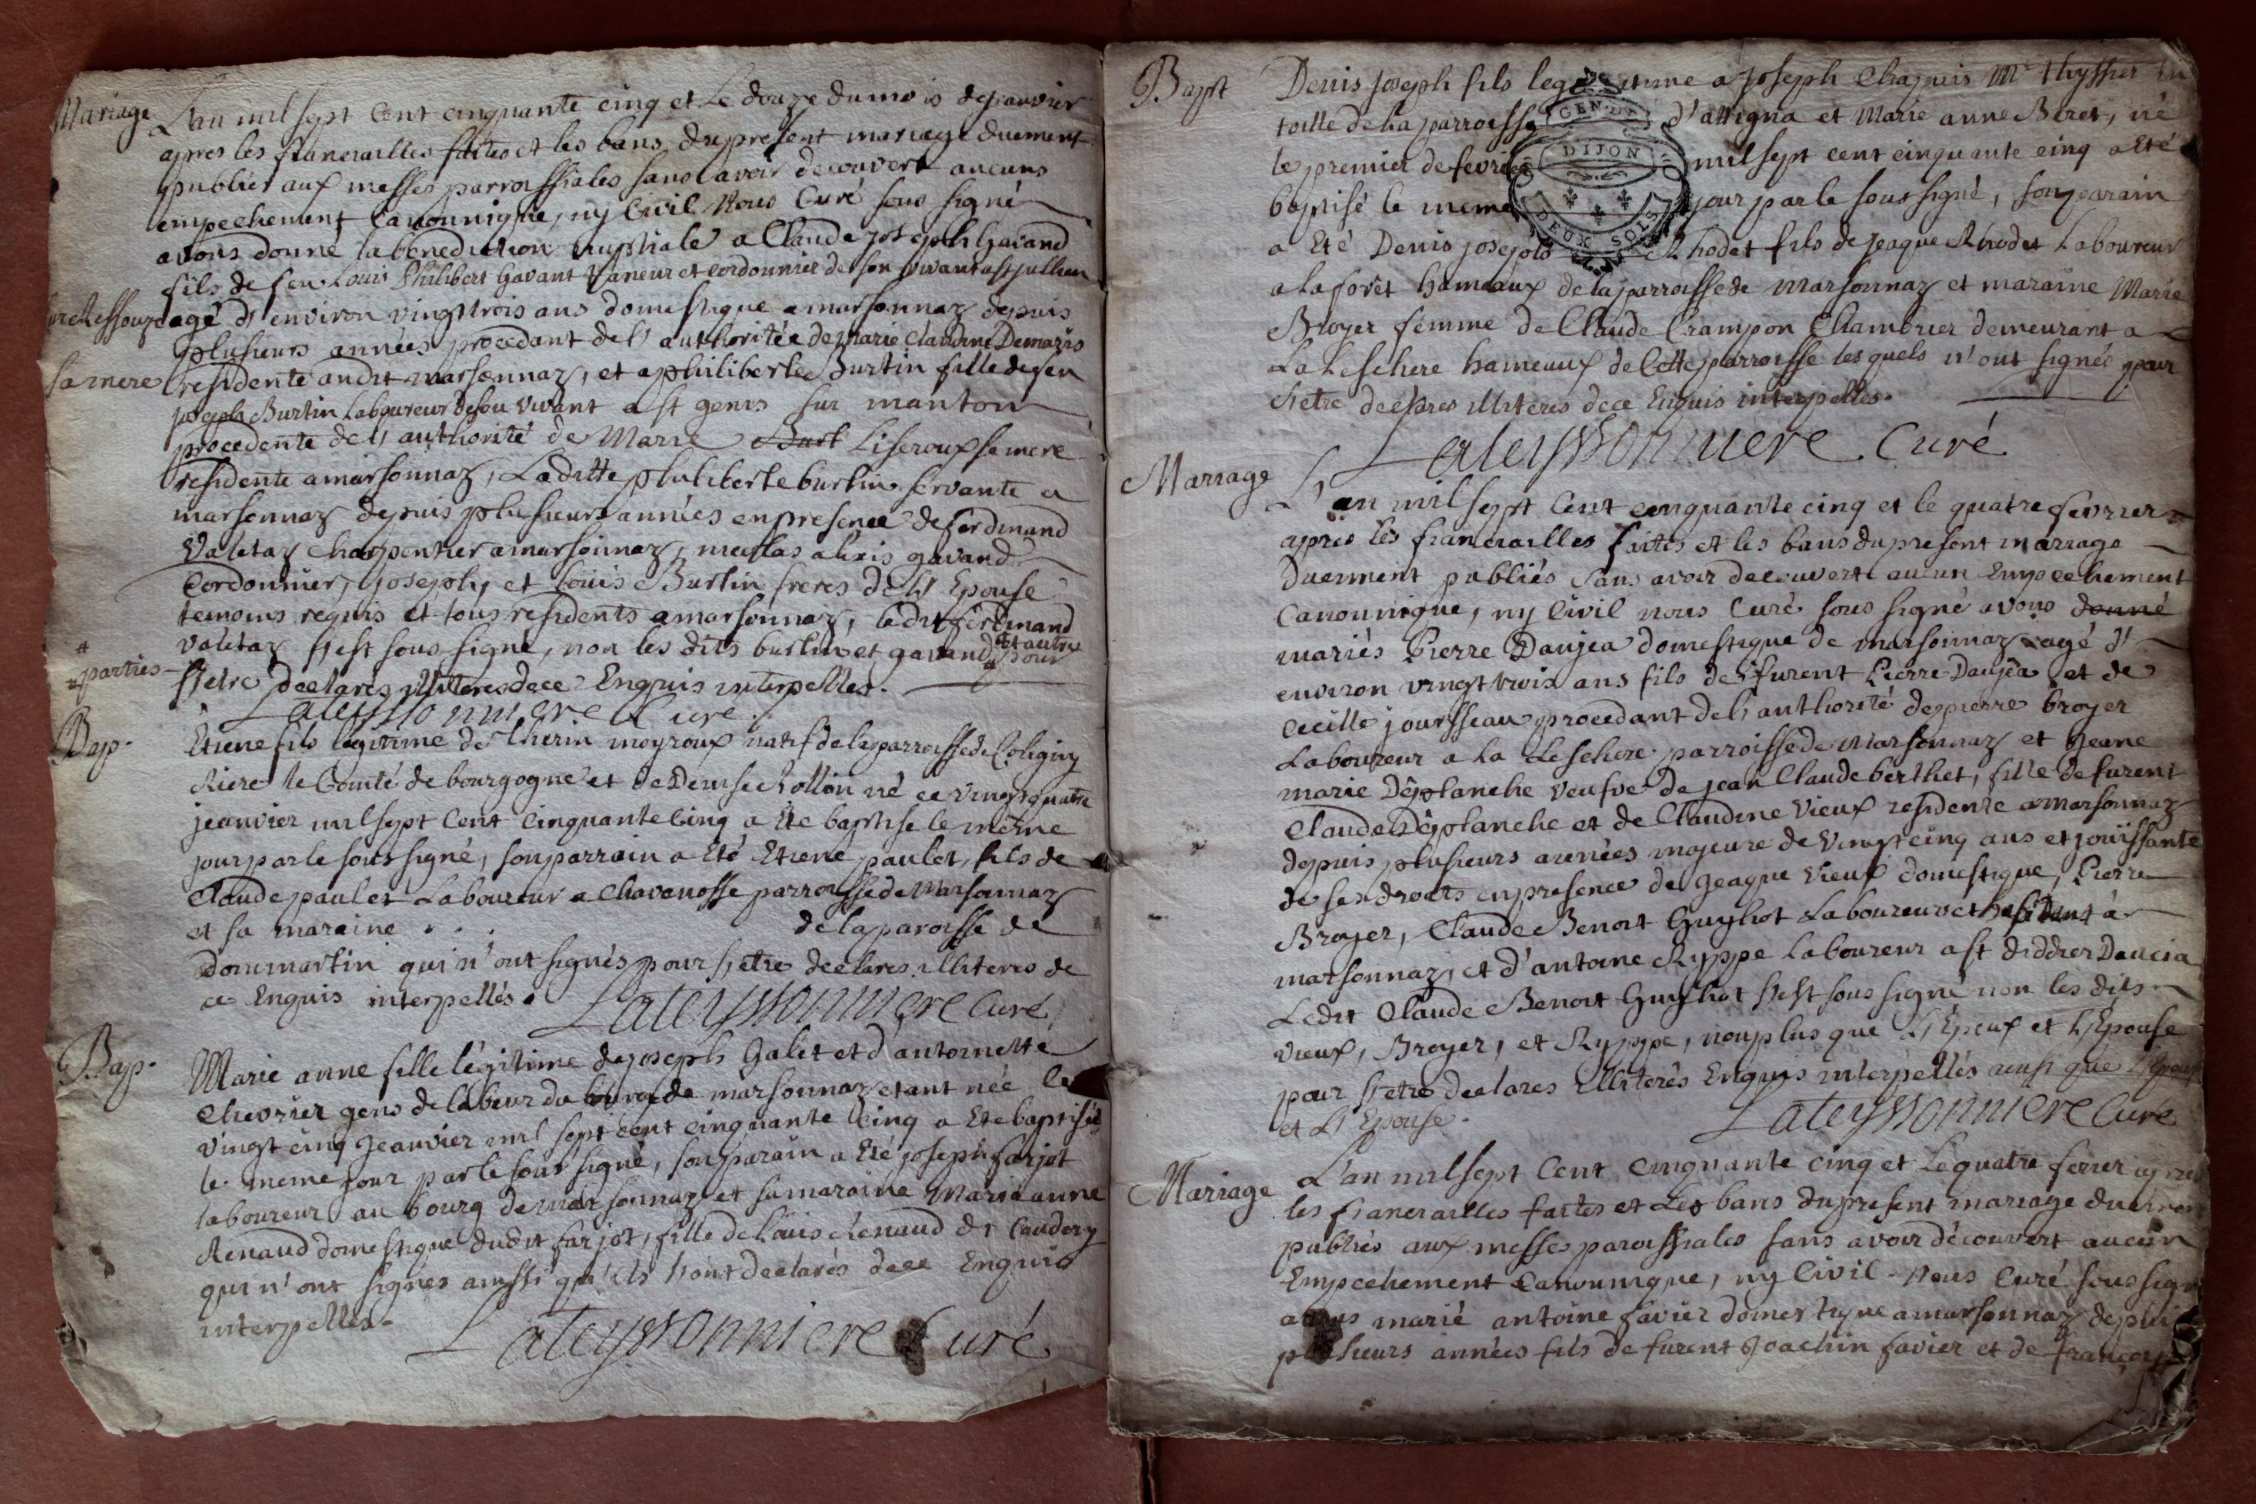 Mariage
L'an mil sept Cent cinquante cinq et Le douze du mois de janvier
apres les fiancrailles faites et les bans du present mariage duement
publiés aux messes parroissiales sans avoir decouvert aucuns
empechement Canonnique, ny Civil Nous Curé sous signé
avons donné la benediction nuptiale a Claude joseph Gavand
fils de feu Louis Philibert Gavant Taneur et cordonnier de son vivant a st jullien
sur Ressouze agé d'environ vingt trois ans domestique a marsonnaz depuis
plusieurs années procedant de l'authoritée de Marie Claudine Demaris
sa mere residente audit marsonnaz, et a philiberte Burtin fille de feu
joseph Burtin Laboureur de son vivant a st genis sur manton
procedente de l'authorité de Marie Burt Liseroux sa mere
residente a marsonnaz, Laditte philiberte burtin servante a
marsonnaz depuis plusieurs années en presence de ferdinand
Valetaz charpentier a marsonnaz, alexis gavand
Cordonnier, joseph, et Louis Burtin freres de l'Epouse
temoins requis et tous residents a marsonnaz, ledit ferdinand
valetaz s'est sous signé, non les dits burtin et gavand et autres
# parties
pour s'etre declarés illiteres de ce Enquis interpellés.
Lateyssonniere Curé
Bap.
Etiene fils légitime de moyroux natif de la parroisse de Coligny
Riere le Comté de bourgogne et de Denise Rollon né ce vingt quatre
jeanvier mil sept Cent Cinquante Cinq a Eté baptisé le même
jour par le sous signé, son parrain a Eté Etiene paulet, fils de
Claude paulet Laboureur a Chavanosse parroisse de Marsonnaz
et sa maraine . . . de la paroisse de
Dommartin qui n'ont signés pour s'etre declarés illiteres de
ce Enquis interpellés. Lateyssonniere Curé
Bap.
Marie anne fille légitime de joseph Galet et d'antoinette
Chevrier gens de labeur du bourg de marsonnaz etant née le
vingt cinq Jeanvier mil sept cent cinquante Cinq a Eté baptisée
le meme jour par le sous signé, son parain a Eté joseph farjot
laboureur au bourg de marsonnaz et sa maraine Marie anne
Renaud domestique dudit farjot, fille de Louis Renaud de Caudery
qui n'ont signés ainssi qu'ils l'ont declarés de ce Enquis
interpellés.
Lateyssonniere Curé
Bapt
Denis joseph fils legitime a Joseph Chapuis Mr thyssier en
toille de la parroisse d'attigna et Marie anne Beret, né
le premier de fevrier mil sept cent cinquante cinq a Eté
baptisé le meme jour par le sous signé, son parain
a Eté Denis joseph Rhodet fils de jeaque Rhodet Laboureur
a la foret hameaux de la parroisse de Marsonnaz et maraine Marie
Broyer femme de Claude Crampon Chambrier demeurant a
La Leschere hameaux de Cette parroisse lesquels n'ont signés pour
s'etre illiteres de ce Enquis interpellés.
GEN. DE DIJON
DEUX SOLS
Lateyssonniere Curé
Mariage
L'an mil sept Cent cinquante cinq et le quatre fevrier
apres les fiancrailles faites et les bans du present mariage
Duement publiés sans avoir decouvert aucun Empechement
Canonnique, ny Civil nous Curé sous signé avons donné
mariés Pierre Daujea domestique de marsonnaz agé d'
environ vingt trois ans fils de furent Pierre Daujea et de
Cecille jousseau procedant de l'authorité de pierre broyer
Laboureur a la Leschere parroisse de Marsonnaz et jeane
marie Déplanche veufve de jean Claude berthet, fille de furent
Claude Déplanche et de Claudine Vieux residente a marsonnaz
depuis plusieurs années majeure de vingt cinq ans et jouissante
de ses droits en presence de jeaque Vieux domestique, Pierre
Broyer, Claude Benoit Guyhot Laboureur et habitant à
marsonnaz, et d'antoine Ryppe Laboureur a st diddier Daucia
Ledit Claude Benoit Guyhot s'est sous signé non les dits
vieux, Broyer, et Ryppe, non plus que L'Epoux et L'Epouse
pour s'etre declarés illiterés Enquis interpellés ainsi que l'Epoux
et L'Epouse.
Lateyssonniere Curé
Mariage
L'an mil sept Cent Cinquante cinq et Le quatre fevrier apres
les fiancrailles faites et Les bans du present mariage duement
publiés aux messes paroissiales sans avoir découvert aucun
Empechement Canonnique, ny Civil Nous Curé sous signé
avons marié antoine favier domestique a marsonnaz depuis
plusieurs années fils de furent Joachin favier et de françoise